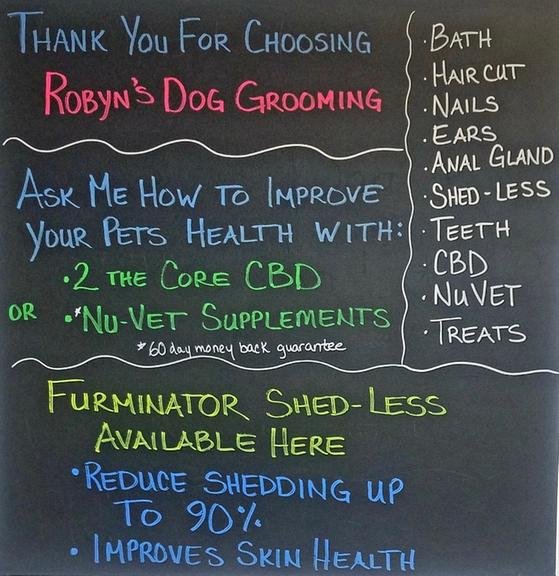 THANK YOU FOR CHOOSING
ROBYN'S DOG GROOMING
ASK ME HOW TO IMPROVE
YOUR PETS HEALTH WITH:
•2 THE CORE CBD
OR •*NU-VET SUPPLEMENTS
*60 day money back guarantee
•BATH
•HAIR CUT
•NAILS
•EARS
•ANAL GLAND
•SHED-LESS
•TEETH
•CBD
•NUVET
•TREATS
FURMINATOR SHED-LESS
AVAILABLE HERE
•REDUCE SHEDDING UP
TO 90%
•IMPROVES SKIN HEALTH